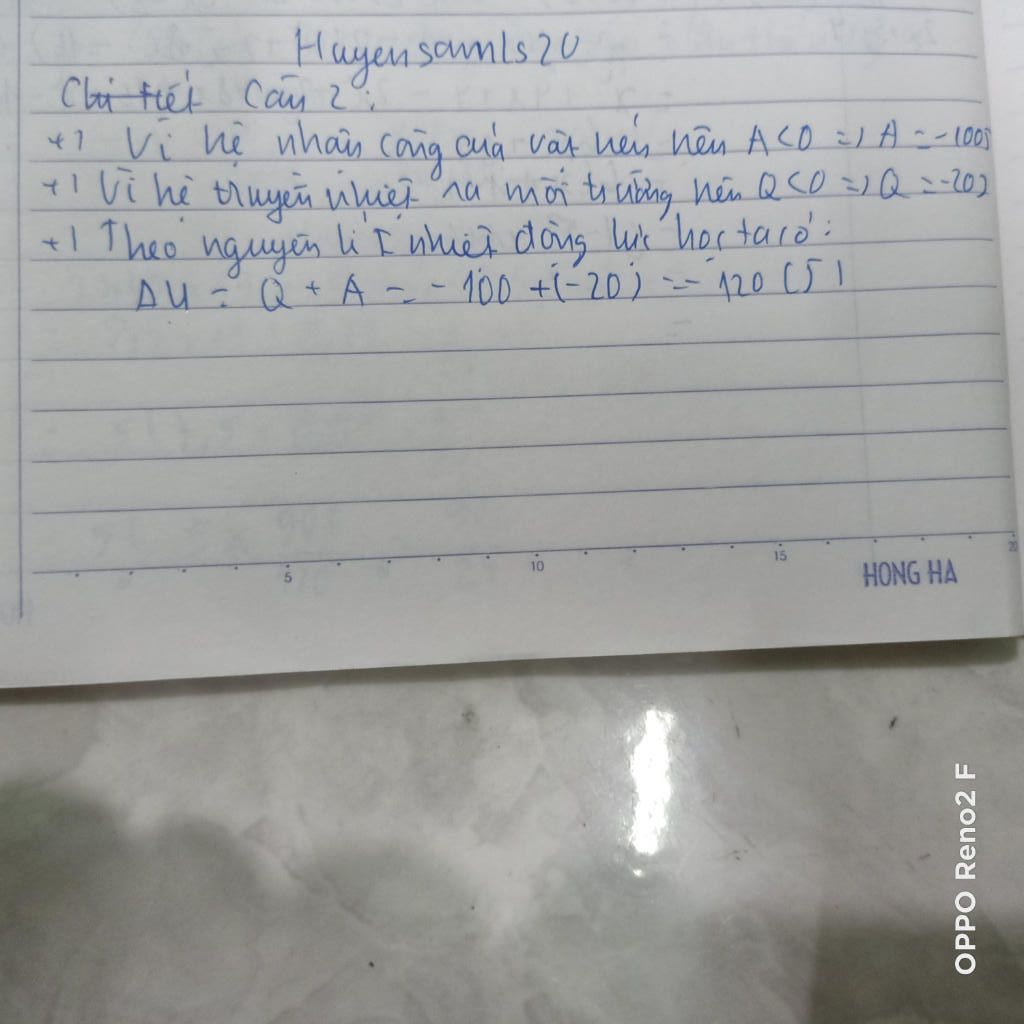 Huyensamls20
Chi tiết Câu 2:
+) Vì hệ nhân công của vật nén nên A<0 => A = -100J
+) Vì hệ truyền nhiệt ra môi trường nên Q<0 => Q = -20J
+) Theo nguyên lí I nhiệt động lực học ta có:
ΔU = Q + A = -100 + (-20) = -120 (J)
5 10 15 20
HONG HA
OPPO Reno2 F